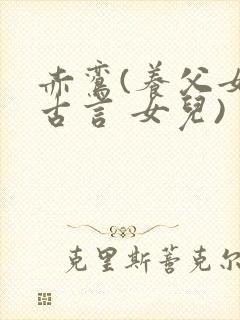 赤鸾(養父女
古言 女兒)
克里斯蒈克尔